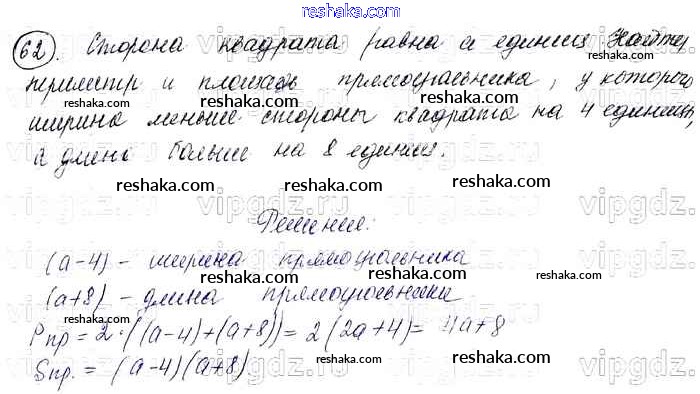 reshaka.com
62. Сторона квадрата равна a единиц Найти
периметр и площадь прямоугольника, у которого
reshaka.com reshaka.com reshaka.com
ширина меньше стороны квадрата на 4 единицы,
а длина больше на 8 единиц.
vipgdz.ru vipgdz.ru vipgdz.ru vipgdz.ru
reshaka.com reshaka.com reshaka.com
Решение:
vipgdz.ru vipgdz.ru vipgdz.ru vipgdz.ru
(a-4) - ширина прямоугольника
reshaka.com reshaka.com reshaka.com
(a+8) - длина прямоугольника
Pпр = 2·((a-4)+(a+8)) = 2(2a+4) = 4a+8
reshaka.com reshaka.com reshaka.com
Sпр. = (a-4)(a+8)
vipgdz.ru vipgdz.ru vipgdz.ru vipgdz.ru
reshaka.com